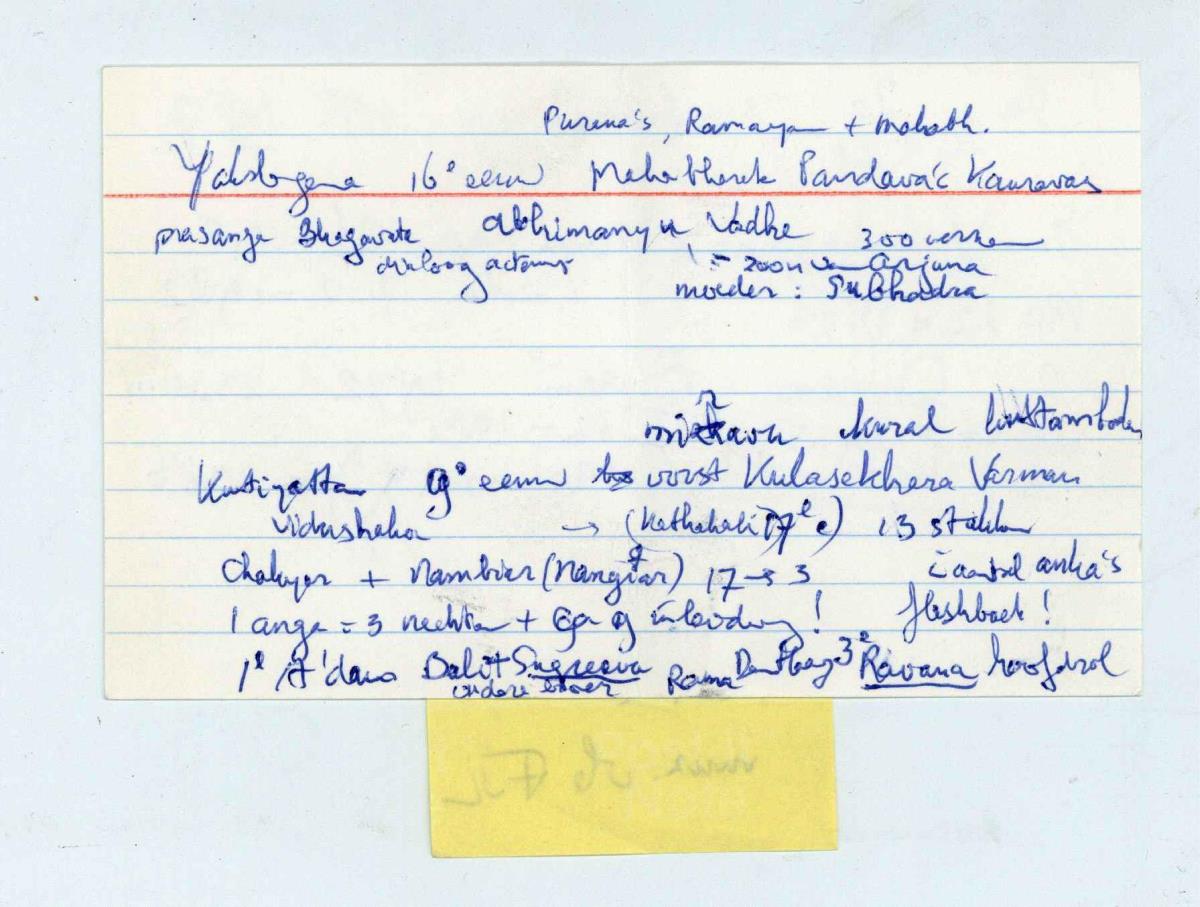 Purana's, Ramayan + Mahabh.
Yakshagana 16e eeuw Mahabharata Pandava's Kauravas
prasanga Bhagavata Abhimanyu Vadha 300 verzen
dialoog acteurs = zoon van Arjuna
moeder: Subhadra
mizhavu
Kutiyattam 9e eeuw vorst Kulasekhera Varman
Vidushaka → (Kathakali 17e e) 13 stukken
Chakyar + Nambiar (Nangiar) 17 → 3 aantal anka's
1 anga = 3 nachten + 9 inleiding! flashback!
1e A'dam Bali + Sugreeva Rama Den Haag 3e Ravana hoofdrol
andere broer